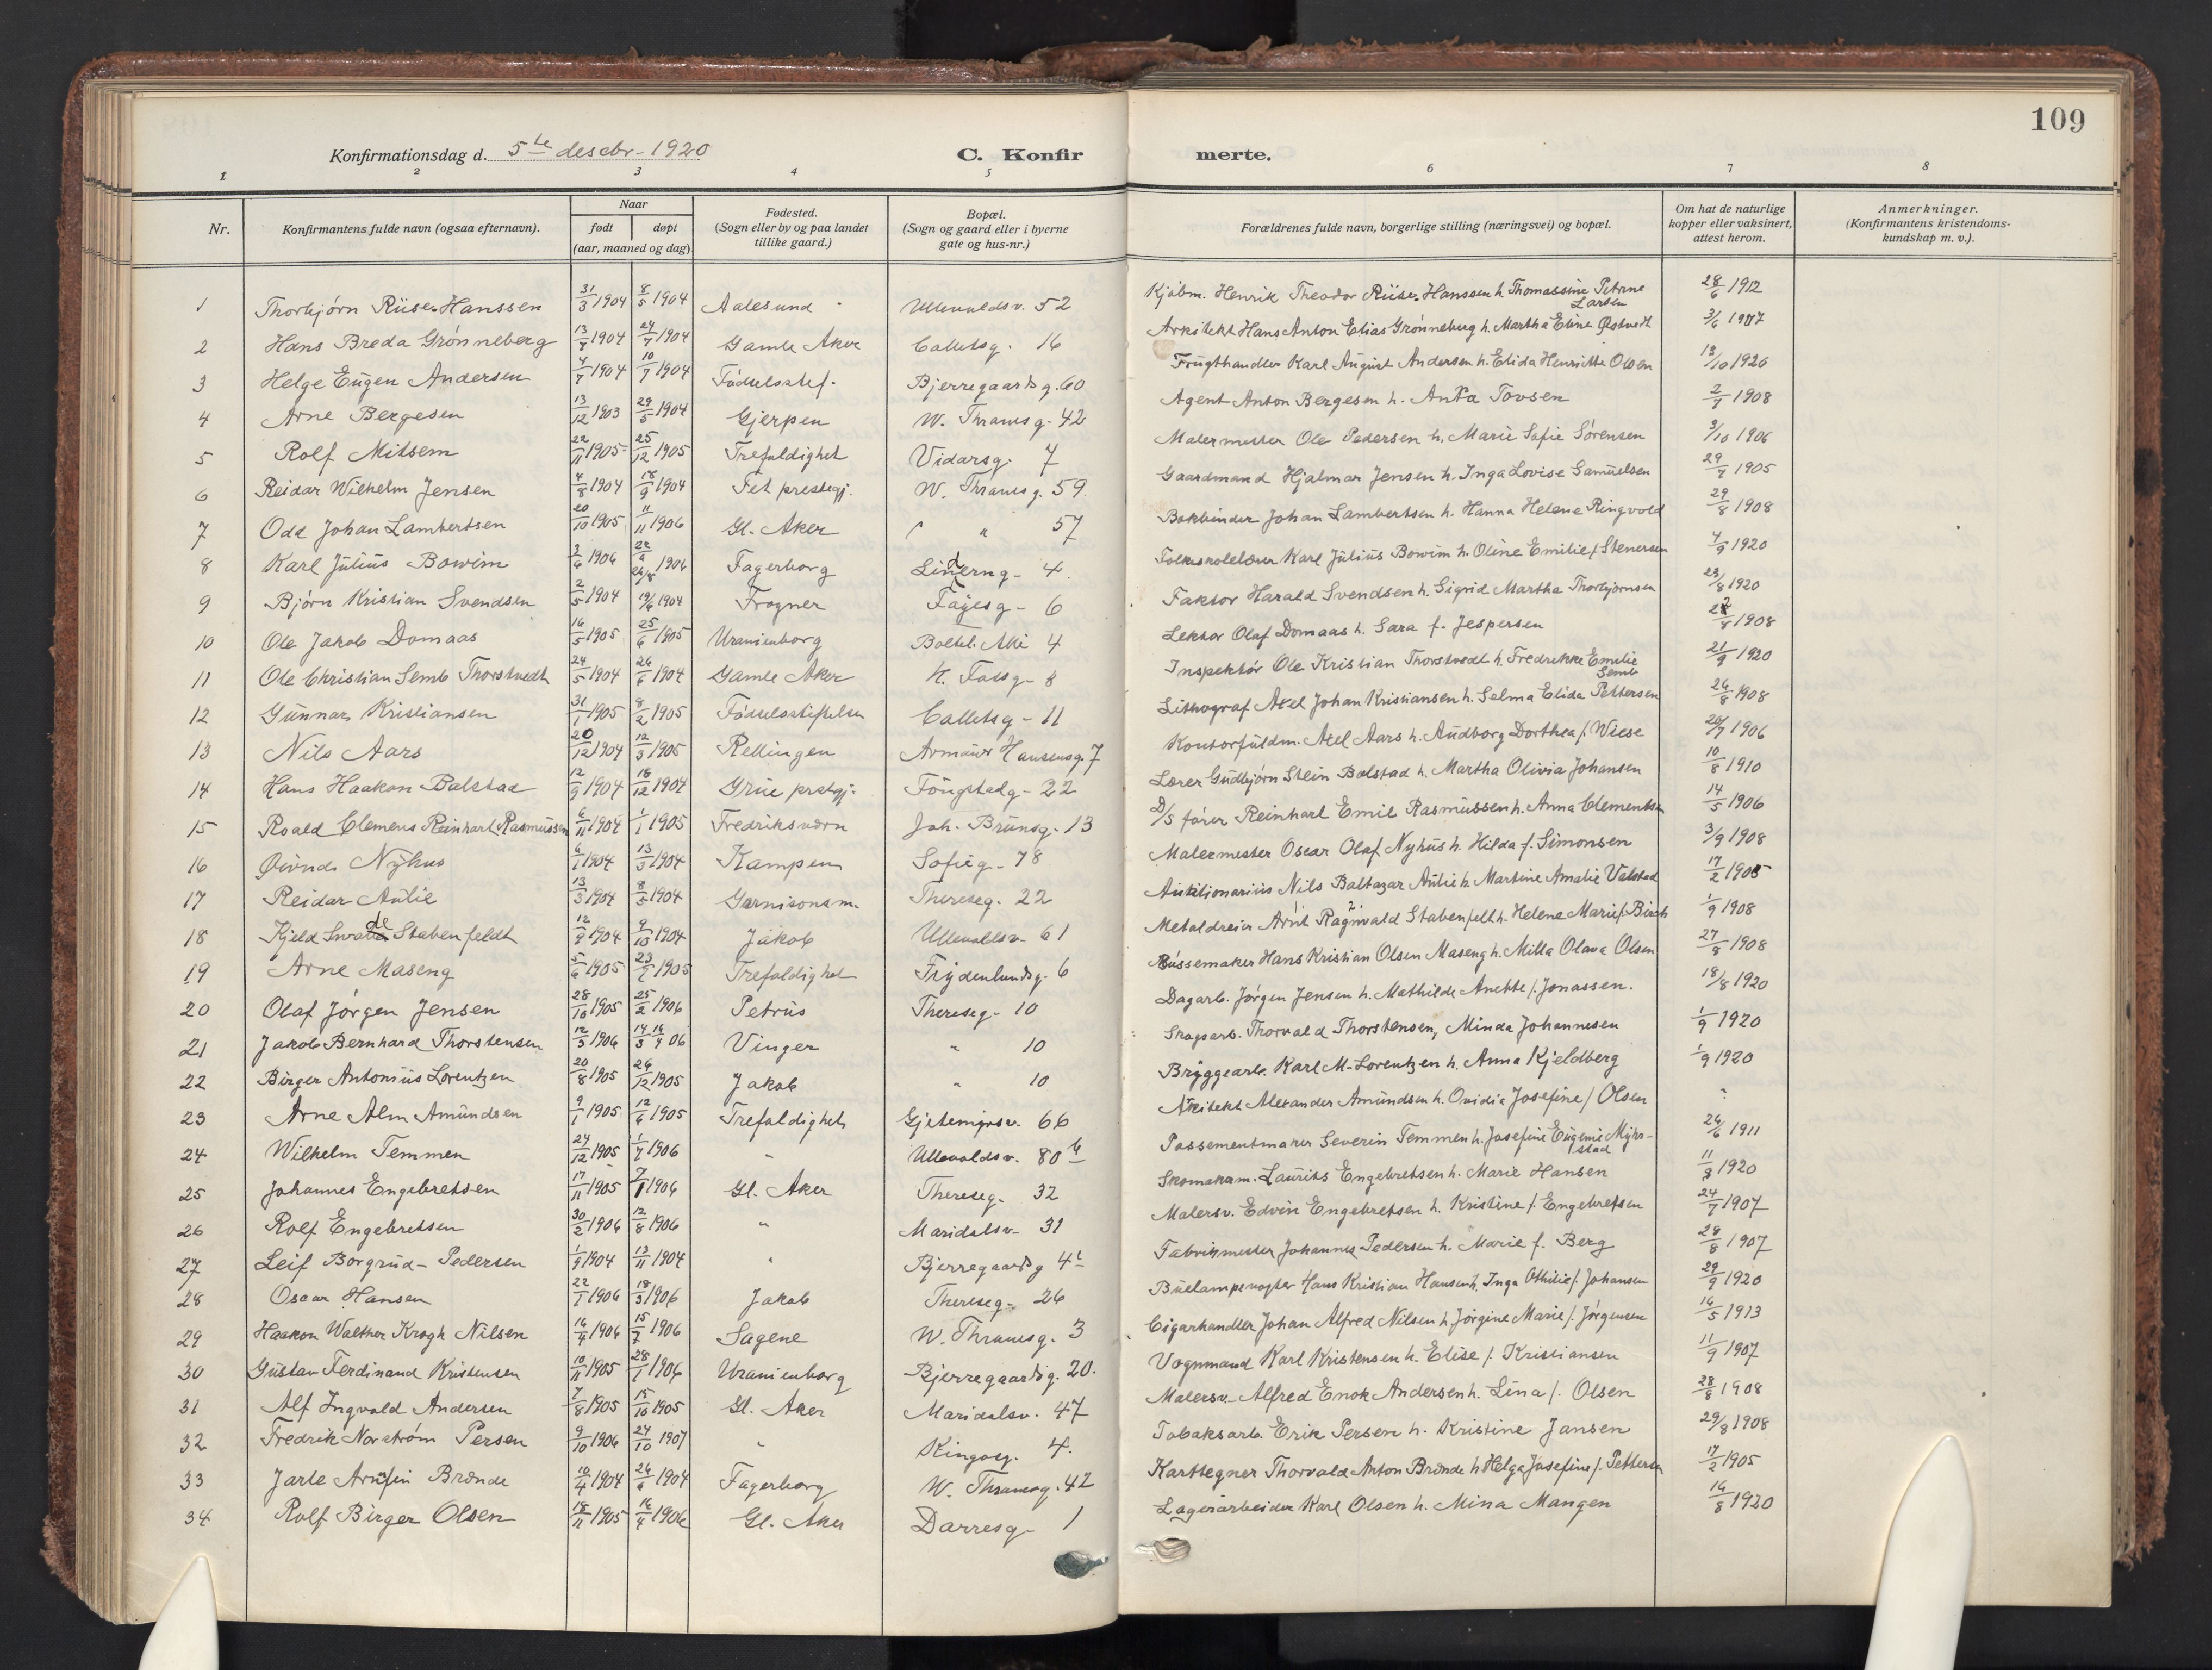 109
Konfirmationsdag d. 5te desebr - 1920 C. Konfir merte.
1 2 3 4 5 6 7 8
Nr. Konfirmantens fulde navn (ogsaa efternavn). Naar født døpt (aar, maaned og dag) Fødested. (Sogn eller by og paa landet tillike gaard.) Bopæl. (Sogn og gaard eller i byerne gate og hus-nr.) Forældrenes fulde navn, borgerlige stilling (næringsvei) og bopæl. Om hat de naturlige kopper eller vaksinert, attest herom. Anmerkninger. (Konfirmantens kristendoms-kundskap m. v.).
1 Thorbjørn Riise-Hanssen 31/3 1904 8/5 1904 Aalesund Ullevaldsv. 52 Kjøbm. Henrik Theodor Riise-Hanssen h. Thomassine Petrine Larsen 28/6 1912
2 Hans Breda Grønneberg 13/7 1904 24/7 1904 Gamle Aker Colletsg. 16 Arkitekt Hans Anton Elias Grønneberg h. Martha Eline Østvedt 3/6 1907
3 Helge Eugen Andersen 4/7 1904 10/7 1904 Fødselsstif. Bjerregaardsg. 60 Frugthandler Karl August Andersen h. Elida Henriette Olsen 12/10 1920
4 Arne Bergesen 13/12 1903 29/5 1904 Gjerpen W. Thranesg. 42 Agent Anton Bergesen h. Anna Tovsen 2/7 1908
5 Rolf Mitsem 22/11 1905 25/12 1905 Trefoldighet Vidarsg. 7 Malermester Ole Pedersen h. Marie Sofie Sørensen 3/10 1906
6 Reidar Wilhelm Jensen 4/8 1904 18/9 1904 Fet prestegj. W. Thranesg. 59 Gaardmand Hjalmar Jensen h. Inga Lovise Samuelsen 29/7 1905
7 Odd Johan Lambertsen 20/10 1905 11/11 1906 Gl. Aker " " 57 Bokbinder Johan Lambertsen h. Hanna Helene Ringvold 29/8 1908
8 Karl Julius Bowim 3/6 1906 1906 Fagerborg Linderng - 4. Folkeskolelærer Karl Julius Bowim h. Oline Emilie f. Stenersen 4/9 1920
9 Bjørn Kristian Svendsen 2/5 1904 19/6 1904 Frogner Fayesg - 6 Faktor Harald Svendsen h. Sigrid Martha Thorbjørnsen 23/8 1920
10 Ole Jakob Domaas 16/5 1905 25/6 1905 Uranienborg Boltel. Alle 4 Lektor Olaf Domaas h. Sara f. Jespersen 1908
11 Ole Christian Semb Thorstvedt 24/5 1904 26/6 1904 Gamle Aker K. Fossg - 8 Inspektør Ole Kristian Thorstvedt h. Fredrikke Emilie Semb 21/9 1920
12 Gunnar Kristiansen 31/1 1905 8/2 1905 Fødselsstiftelsen Colletsg - 11 Lithograf Axel Johan Kristiansen h. Selma Elida Pettersen 26/8 1908
13 Nils Aars 20/12 1904 12/3 1905 Rellingen Armauer Hansensg. 7 Kontorfuldm. Axel Aars h. Audborg Dorthea f. Wiese 20/7 1906
14 Hans Haakon Balstad 12/9 1904 18/12 1904 Grue prstgj. Föugstadg - 22 Lærer Gudbjørn Stein Balstad h. Martha Olivia Johansen 10/8 1910
15 Roald Clemens Reinhart Rasmussen 6/11 1904 1/1 1905 Fredriksværn Joh. Brunsg. 13 D/S fører Reinhart Emil Rasmussen h. Anna Clementsen 14/5 1906
16 Øivind Nyhus 6/1 1904 13/3 1904 Kampen Sofieg - 78 Malermester Oscar Olaf Nyhus h. Hilda f. Simonsen 3/9 1908
17 Reidar Aulie 13/3 1904 8/5 1904 Garnisonsm. Thereseg. 22 Auktionarius Nils Baltazar Aulie h. Martine Amalie Valstad 17/2 1905
18 Kjeld Stabenfeldt 12/9 1904 9/10 1904 Jakob Ullevaldsv. 61 Metaldreier Arnt Ragnvald Stabenfelt h. Helene Marie f. Birch 1/9 1908
19 Arne Maseng 5/6 1905 23/7 1905 Trefoldighet Frydenlundsg. 6 Bøssemaker Hans Kristian Olsen Maseng h. Milla Olava Olsen 27/8 1908
20 Olaf Jørgen Jensen 28/10 1905 25/2 1906 Petrus Thereseg - 10 Dagarb. Jørgen Jensen h. Mathilde Anette f. Jonassen. 18/8 1920
21 Jakob Bernhard Thorstensen 12/3 1906 14/3 16/4 06 Vinger " 10 Skogsarb. Thorvald Thorstensen, Minda Johannesen 1/9 1920
22 Birger Antonius Lorentzen 20/8 1905 26/12 1905 Jakob " 10 Bryggearb. Karl M. Lorentzen h. Anna Kjeldberg 1/9 1920
23 Arne Alm Amundsen 9/1 1905 12/6 1905 Trefoldighet Gjetemyrsv. 66 Arkitekt Alexander Amundsen h. Ovidia Josefine f. Olsen "
24 Wilhelm Temmen 24/12 1905 1/7 1906 " Ullevaldsv. 80 b Possementmaker Severin Temmen h. Josefine Eugenie Myhrstad 26/6 1911
25 Johannes Engebretsen 17/11 1905 7/1 1906 Gl. Aker Thereseg. 32 Skomakerm. Laurits Engebretsen h. Marie Hansen 11/8 1920
26 Rolf Engebretsen 30/2 1906 12/8 1906 " Maridalsv - 31 Malersv. Edvin Engebretsen h. Kristine f. Engebretsen 24/7 1907
27 Leif Borgrud - Pedersen 1/9 1904 13/11 1904 " Bjerregaardsg 4 Fabrikmester Johannes Pedersen h. Marie f. Berg 28/8 1907
28 Oscar Hansen 22/1 1906 18/3 1906 Jakob Thereseg - 26 Buelampevogter Hans Kristian Hansen h. Inga Othilie f. Johansen 29/9 1920
29 Haakon Walther Krogh Nilsen 16/4 1906 15/7 1906 Sagene W. Thranesg. 3 Cigarhandler Johan Alfred Nilsen h. Jørgine Marie f. Jørgensen 16/5 1913
30 Gustav Ferdinand Kristensen 10/11 1905 28/1 1906 Uranienborg Bjerregaardsg. 20. Vognmand Karl Kristensen h. Elise f. Kristiansen 11/9 1907
31 Alf Ingvald Andersen 7/8 1905 15/10 1905 Gl. Aker Maridalsv. 47 Malersv - Alfred Enok Andersen h. Lina f. Olsen 28/8 1908
32 Fredrik Norstrøm Persen 9/10 1906 27/10 1907 " Kingosg. 4. Tobaksarb. Erik Persen h. Kristine Jansen 29/8 1908
33 Jarle Arnfin Brænde 10/4 1904 26/6 1904 Fagerborg W. Thranesg. 42 Karttegner Thorvald Anton Brænde h Helga Josefine f. Pettersen 17/2 1905
34 Rolf Birger Olsen 18/11 1905 16/4 1906 Gl. Aker Darresg - 1 Lagerarbeider Karl Olsen h. Mina Mangen 16/8 1920